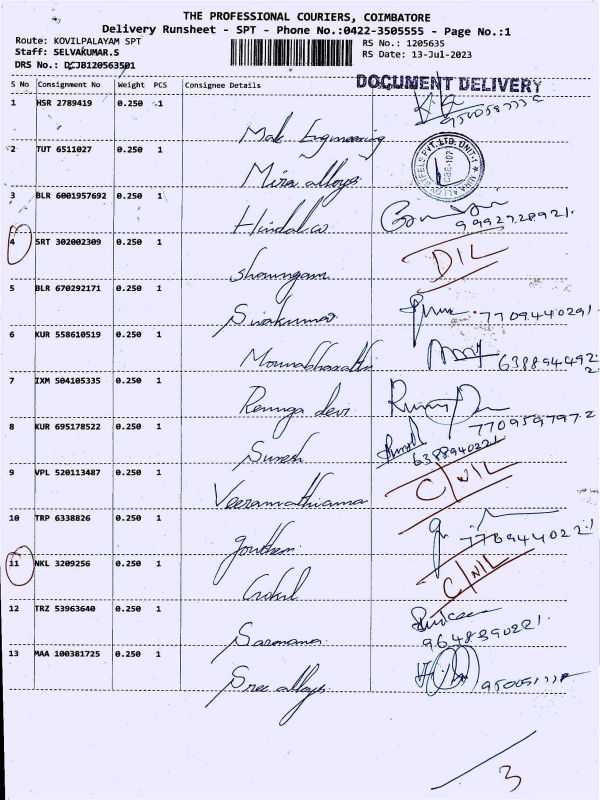 THE PROFESSIONAL COURIERS, COIMBATORE
Delivery Runsheet - SPT - Phone No.:0422-3505555 - Page No.:1
Route: KOVILPALAYAM SPT
Staff: SELVAKUMAR.S
DRS No.: DCJB120563501
RS No.: 1205635
RS Date: 13-Jul-2023
S No Consignment No Weight PCS Consignee Details
DOCUMENT DELIVERY
1 HSR 2789419 0.250 1 Mak Engineering
2 TUT 6511027 0.250 1 Mira alloys
3 BLR 6001957692 0.250 1 Hindalco 9992728921.
4 SRT 302002309 0.250 1 DIL
5 BLR 670292171 0.250 1 Sivakumar 7709440291
6 KUR 558610519 0.250 1 Mounabharathi
7 IXM 504105335 0.250 1 Rennga devi 7709597972
8 KUR 695178522 0.250 1 Suresh 6388940221
9 VPL 520113487 0.250 1 C/NIL
10 TRP 6338826 0.250 1 Goutham 7709440221
11 NKL 3209256 0.250 1 Gokul C/NIL
12 TRZ 53963640 0.250 1 Sarmana 9648390221.
13 MAA 100381725 0.250 1 Sree alloys
3